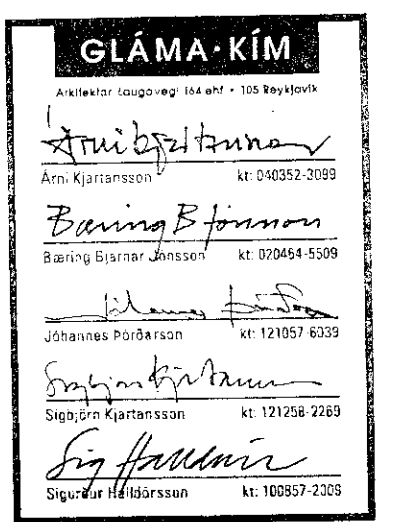 GLÁMA·KÍM
Arkitektar Laugavegi 164 ehf • 105 Reykjavík
Árni Kjartansson
Árni Kjartansson kt: 040352-3099
Bæring B Jónsson
Bæring Bjarnar Jónsson kt: 020464-5509
Jóhannes Þórðarson
Jóhannes Þórðarson kt: 121057-6939
Sigbjörn Kjartansson
Sigbjörn Kjartansson kt: 121258-2269
Sig Halldórs
Sigurður Halldórsson kt: 100857-2309